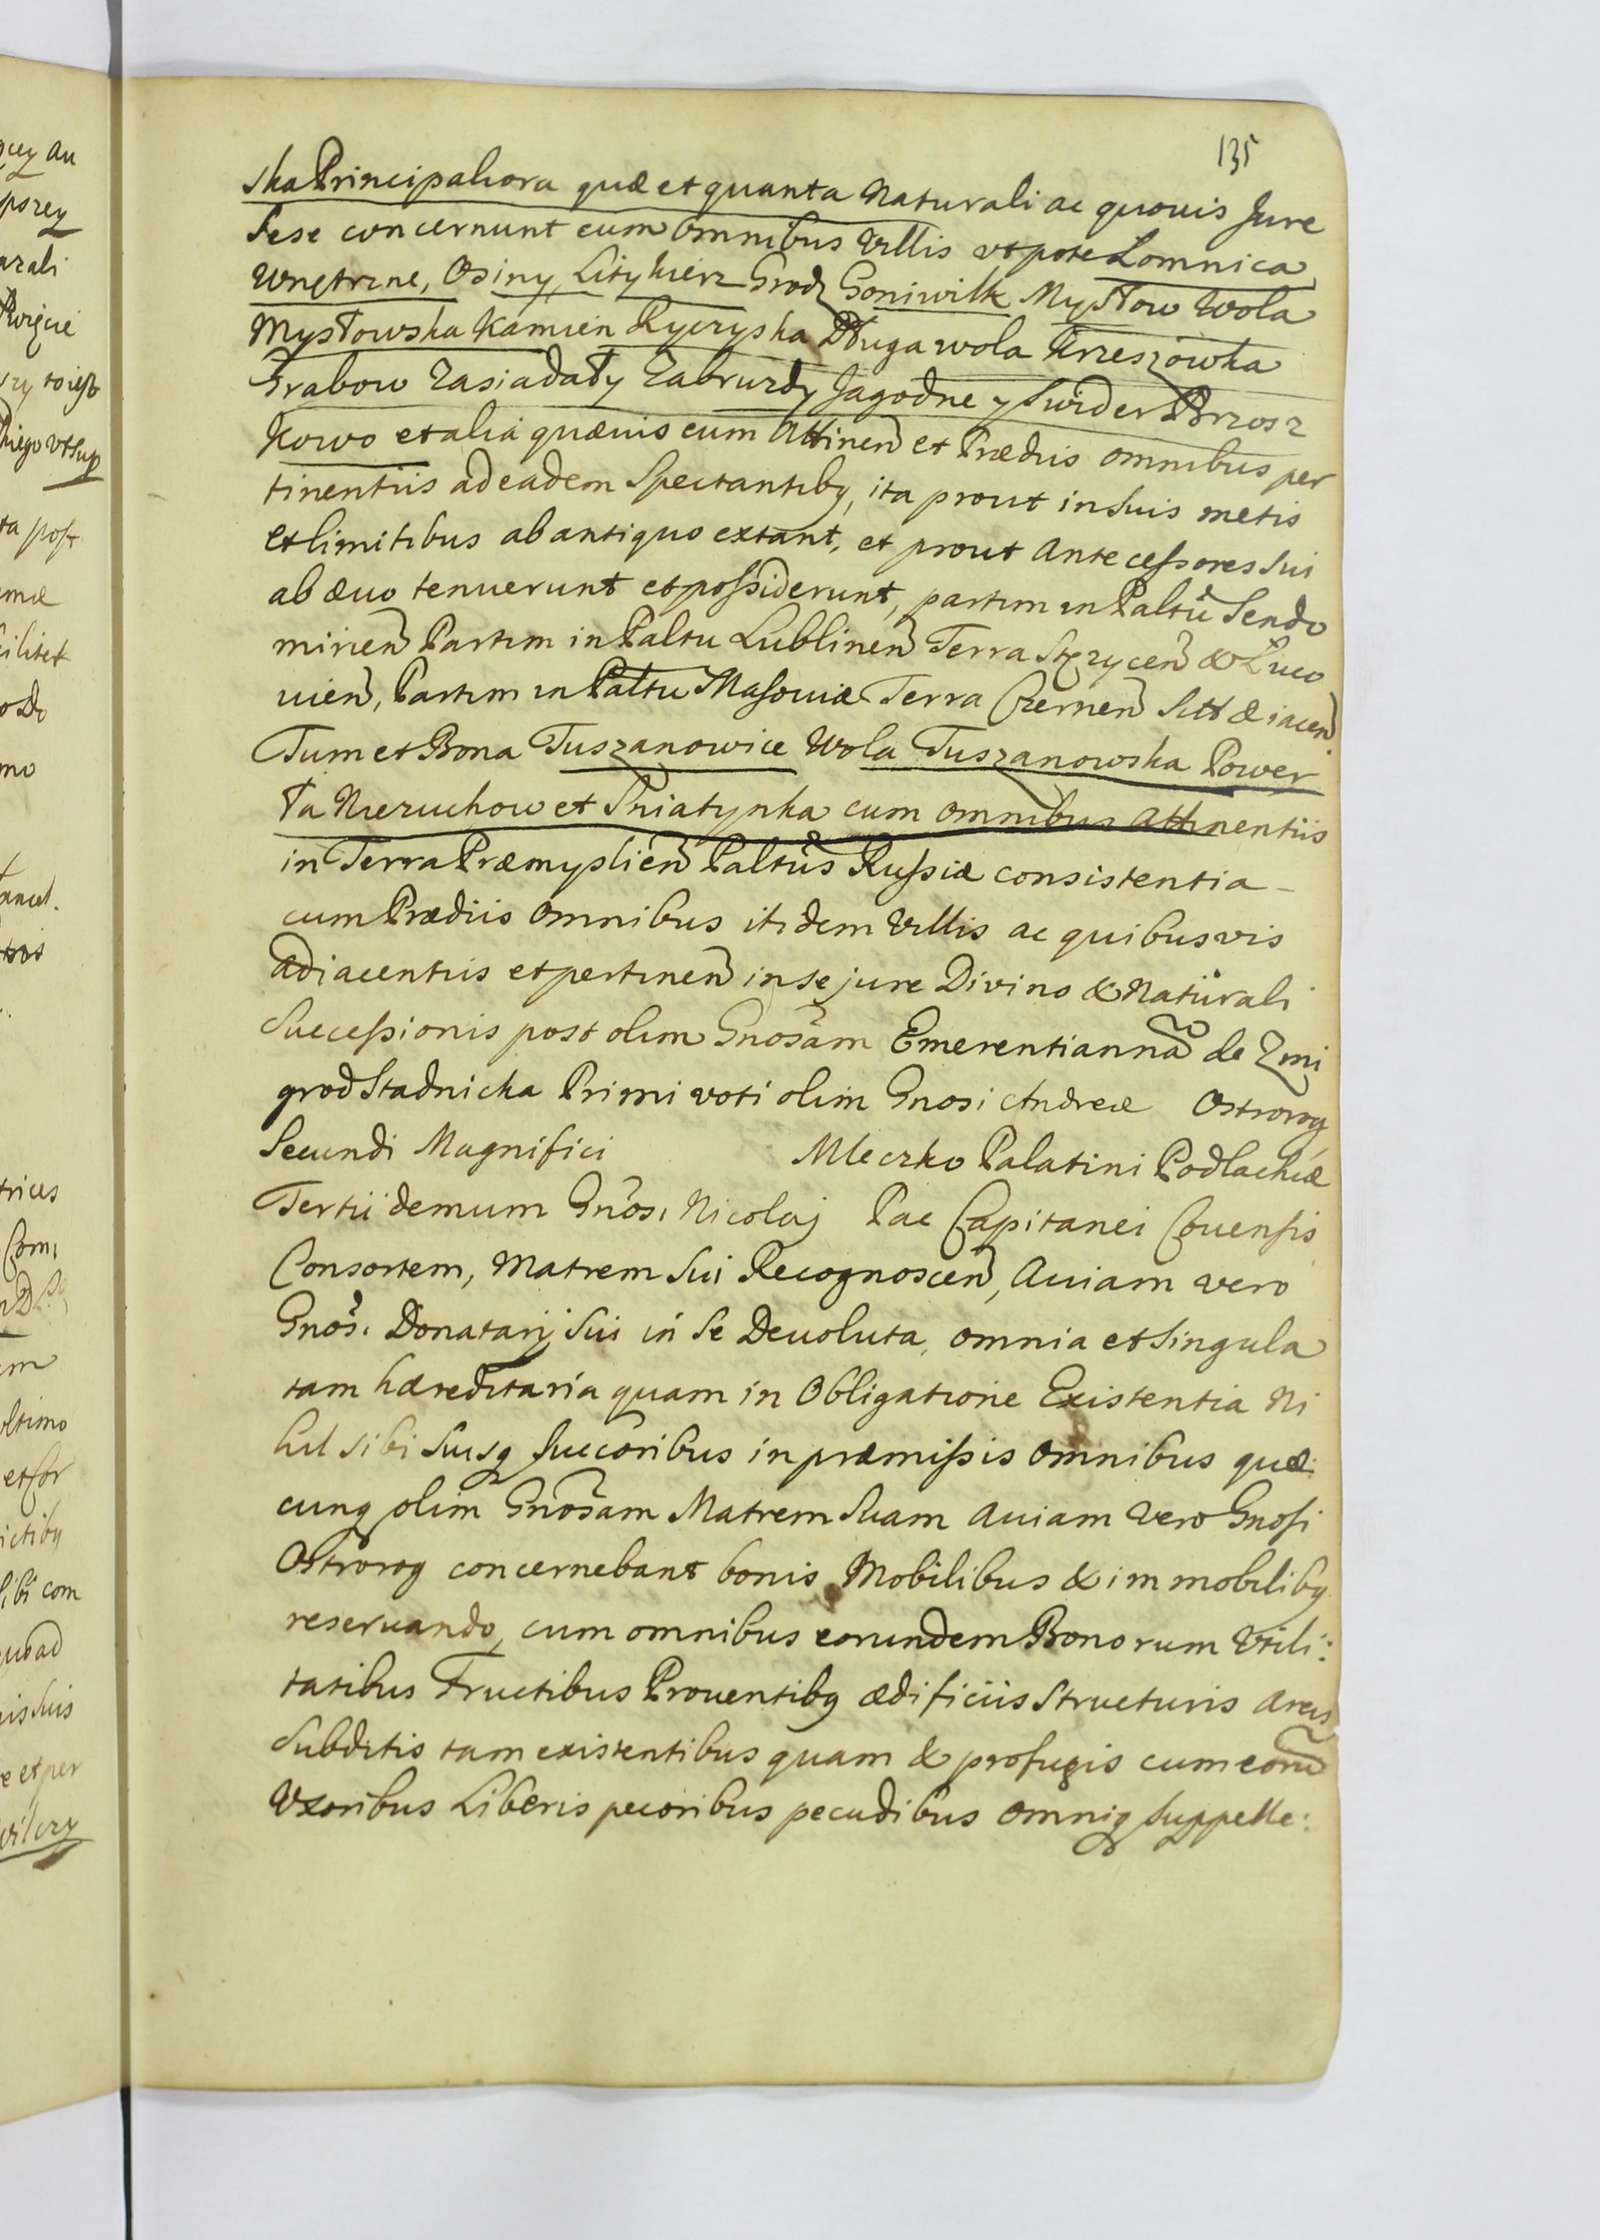 135
ska Principaliora quæ et quanta Naturali ac quouis Jure
Sese concernunt cum omnibus Villis vtpote Łomnica
Wnętrzne, Osiny, Lityhierz Grodz Goniwilk Mysłow Wola
Mysłowska Kamien Rycryska Długa wola Krzeszowka
Grabow Zasiadały Zabruzdy Jagodne y Swider Brzosz
kowo et alia quævis cum Attinen et Prædiis omnibus per
tinentiis ad eadem Spectantibq, ita prout in suis metis
et limitibus ab antiquo extant, et prout Antecessores sui
ab ævo tenuerunt et possiderunt, partim in Paltu Sendo
mirien Partim in Paltu Lublinen Terra Stęzycen & Luco
uien, Partim in Paltu Masouiæ Terra Czernen Sitt & iacen
Tum et Bona Tuszanowice Wola Tuszanowska Power
ta Nieruchow et Sniatynka cum omnibus attinentiis
in Terra Præmyslien Paltus Russiæ consistentia
cum Prædiis omnibus itidem Villis ac quibusvis
adiacentiis et pertinen in se jure Divino & Naturali
Successionis post olim Gnosam Emerentianna de Zmi
grod Stadnicka Primi voti olim Gnosi Andreæ Ostrorog
Secundi Magnifici Mleczko Palatini Podlachiæ
Tertii demum Gnosi Nicolaj Pac Capitanei Covensis
Consortem, Matrem sui Recognoscen, Auiam vero
Gnosi Donatarij sui in se Deuoluta, omnia et singula
tam hæreditaria quam in Obligatione Existentia Ni
hil sibi suisq succoribus in præmissis omnibus quæ
cunq olim Gnosam Matrem suam Auiam vero Gnosi
Ostrorog concernebant bonis Mobilibus & immobilibq
reseruando, cum omnibus eorundem Bonorum Vtili:
tatibus Fructibus Prouentibq ædificiis Structuris areis
Subditis tam existentibus quam & profugis cum eoru
Vxoribus Liberis pecoribus pecudibus omniq suppelle: